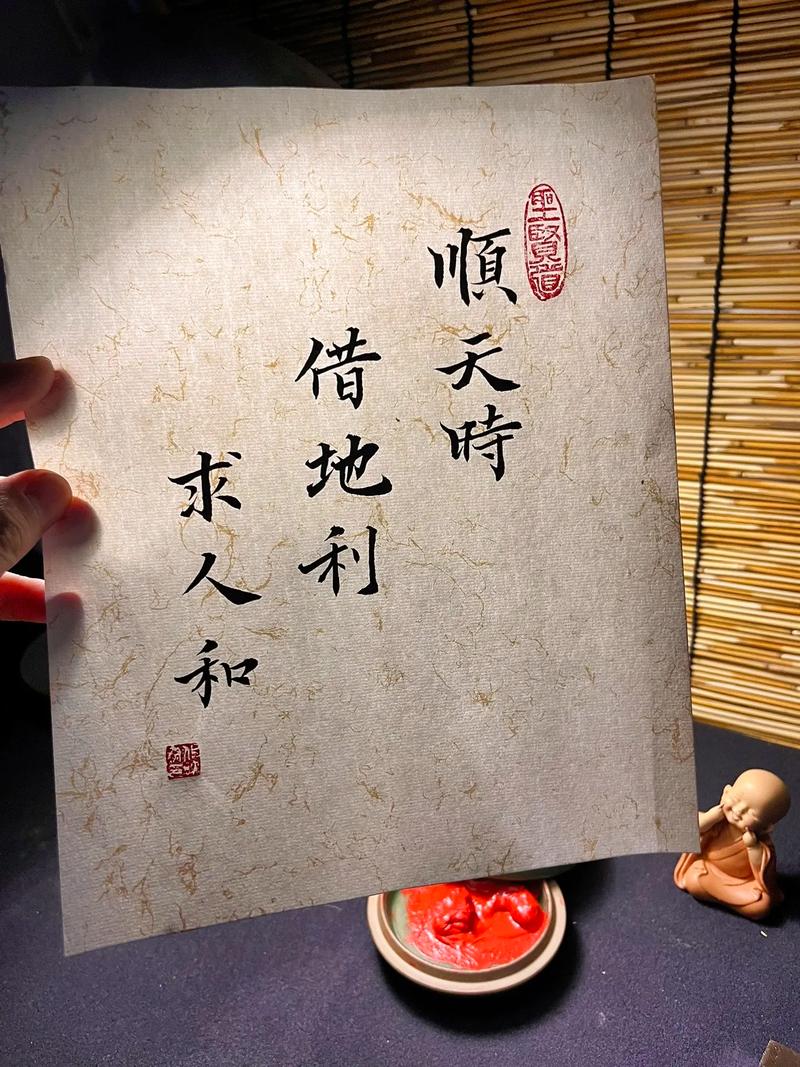 聖賢道
順天時
借地利
求人和